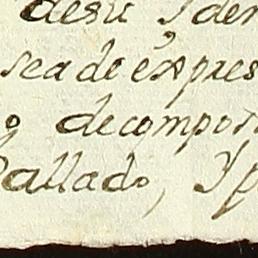 desu Yden
sea de expres
o decompor
Pallado, Y p